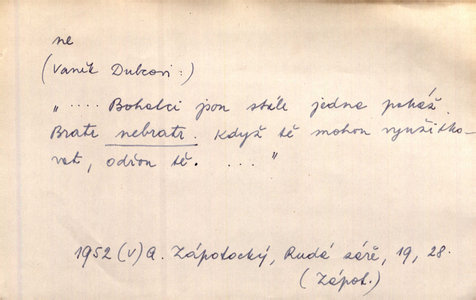 ne
(Vaněk Dubcovi:)
" .... Boháči jsou stále jedna pakáž.
Bratr nebratr. Když tě mohou využitko-
vat, odřou tě. .... "
1952 (V) A. Zápotocký, Rudá záře, 19, 28.
(Zápot.)